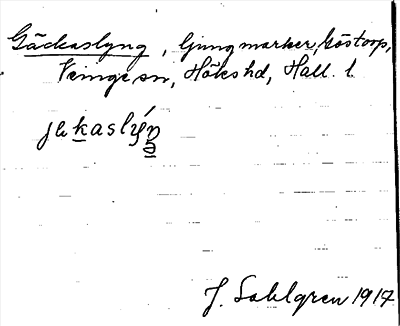 Gäckaslyng, ljungmarker, Göstorp,
Veinge sn, Höks hd, Hall. l.
jekaslýŋ
J. Sahlgren 1917